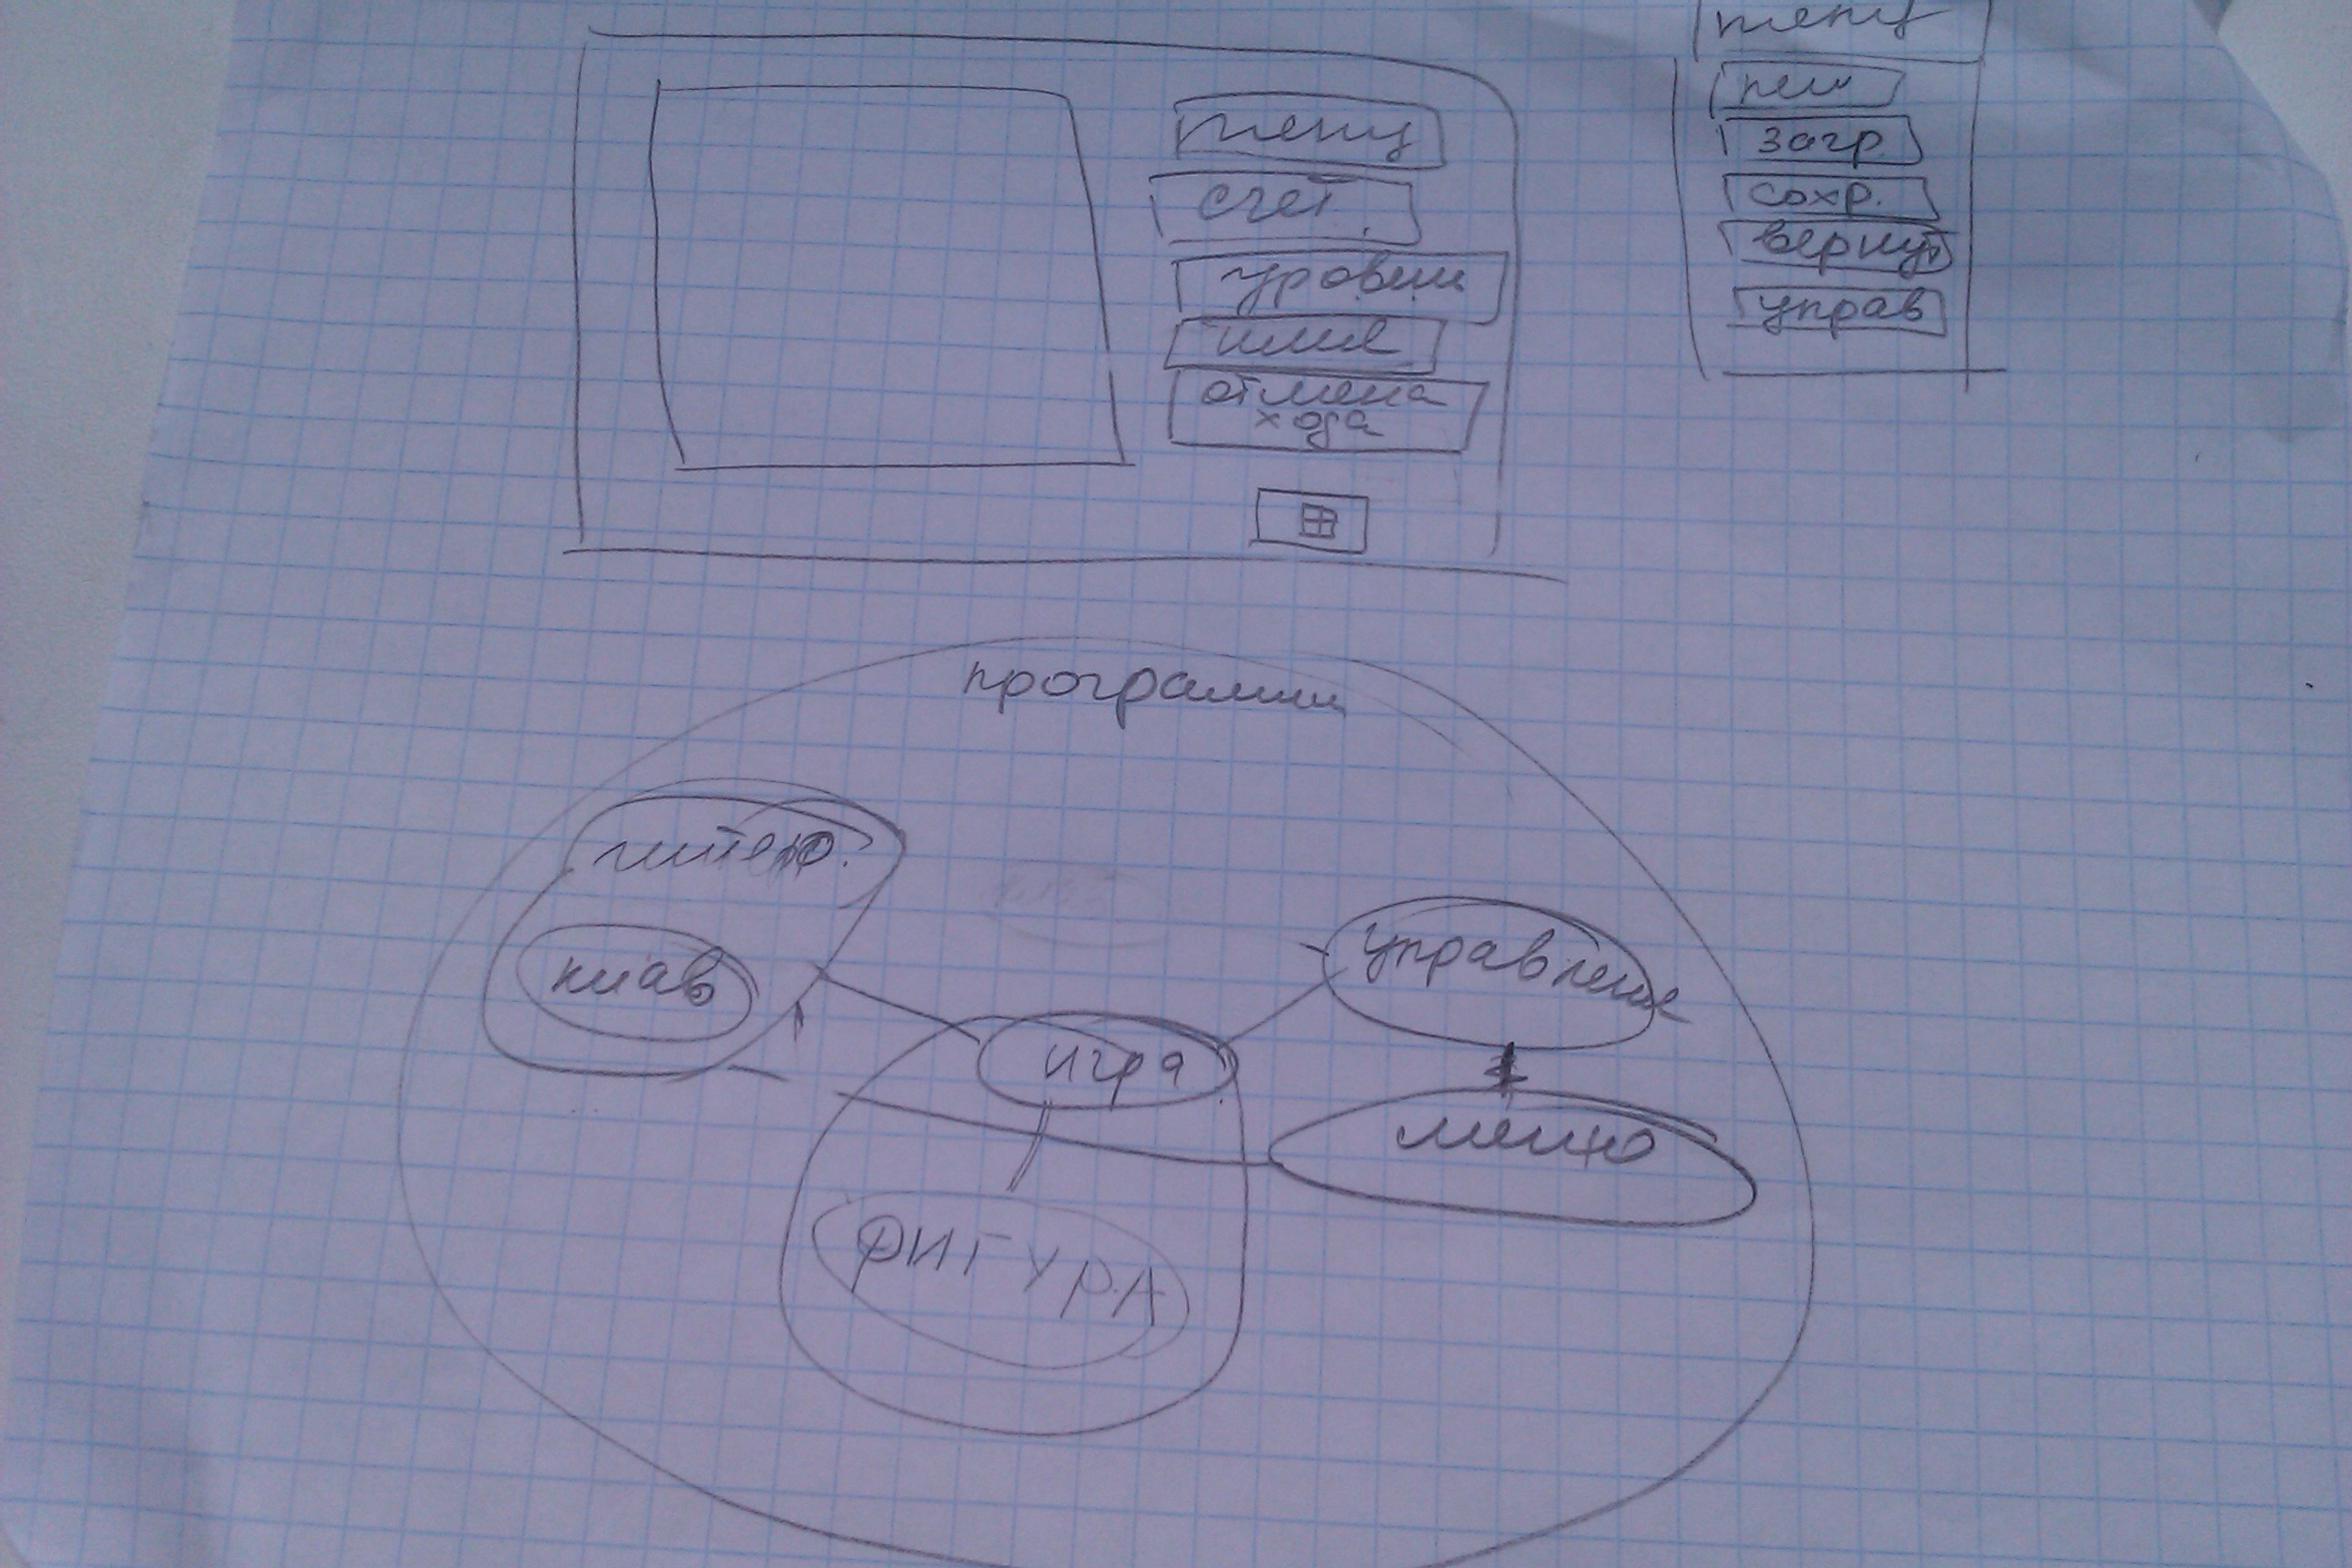 menu
счет
уровень
имя
отмена
хода
menu
new
загр
сохр.
вернут
управ
программа
клав
управление
игра
меню
ФИГУРА